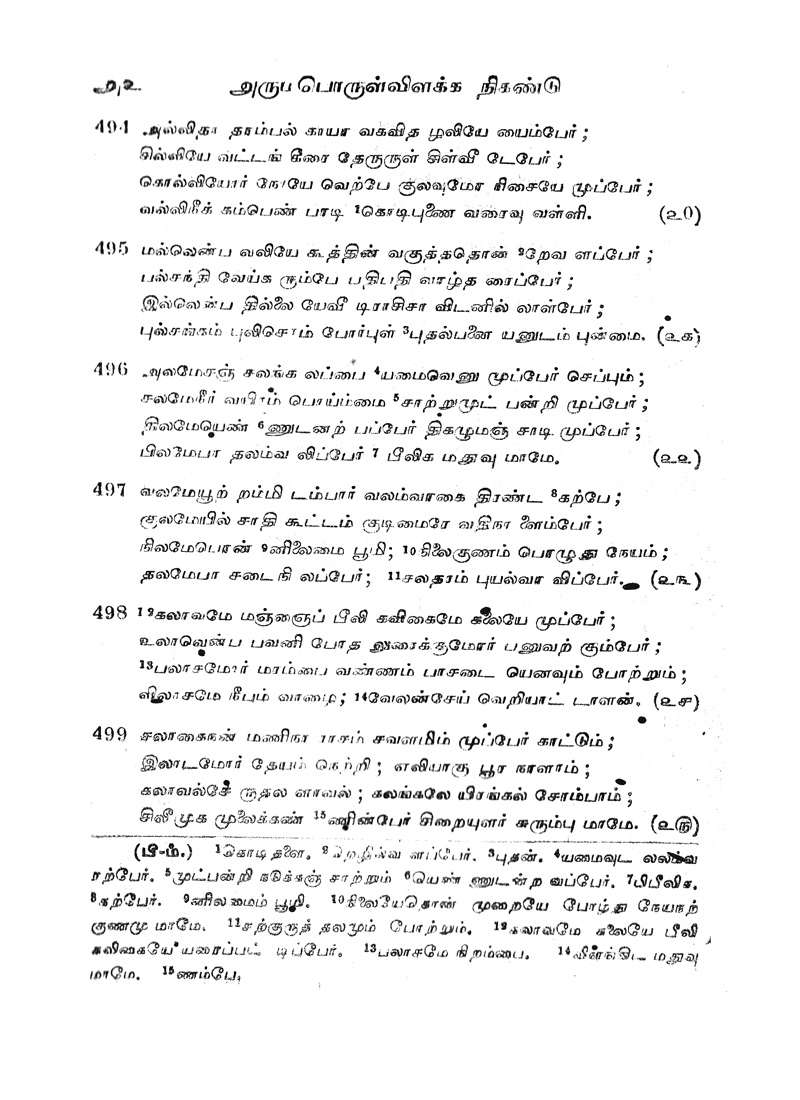 ௩௨ அரும பொருள்விளக்க நிகண்டு
494 அல்லிதா தாம்பல் காயா வகவித ழலியே யைம்பேர் ;
சில்லியே வட்டங் கீரை தேருருள் சிள்வீ டேபேர் ;
கொல்லியோர் நோயே வெற்பே குலவுமோ ரிசையே முப்பேர் ;
வல்லிநீக் கம்பெண் பாடி 1கொடிபுணை வரைவு வள்ளி. (௨௦)
495 மல்லென்ப வலியே கூத்தின் வகுத்ததொன் 2றேவ ளப்பேர் ;
பல்சந்தி வேய்க ரும்பே பதிபதி வாழ்த ரைப்பேர் ;
இல்லென்ப தில்லை யேவீ டிராசிசா விடனில் லாள்பேர் ;
புல்சங்கம் புலிசொம் போர்புள் 3புதல்பனை யனுடம் புன்மை. (௨௧)
496 அலமேசஞ் சலங்க லப்பை 4யமைவெனு முப்பேர் செப்பும் ;
சலமேநீர் வயிரம் பொய்ம்மை 5சாற்றுமுட் பன்றி முப்பேர் ;
நிலமேயெண் 6ணுடனற் பப்பேர் திகழுமஞ் சாடி முப்பேர் ;
பிலமேபா தலம்வ லிப்பேர் 7 பீலிக மதுவு மாமே. (௨௨)
497 வலமேயூற் றம்மி டம்பார் வலம்வாகை திரண்ட 8கற்பே ;
குலமேயில் சாதி கூட்டம் குடிமைரே வதிநா ளைம்பேர் ;
நிலமேபொன் 9னிலைமை பூமி ; 10நிலைகுணம் பொழுது நேயம் ;
தலமேபா சடைநி லப்பேர் ; 11சலதரம் புயல்வா விப்பேர். (௨௩)
498 12கலாவமே மஞ்ஞைப் பீலி கவிகைமே கலையே முப்பேர் ;
உலாவென்ப பவனி போத லுரைக்குமோர் பனுவற் கும்பேர் ;
13பலாசமோர் மரம்பை வண்ணம் பாசடை யெனவும் போற்றும் ;
விலாசமே நீபும் வாழை ; 14வேலன்சேய் வெறியாட் டாளன். (௨௪)
499 சலாகைநன் மணிநா ராசம் சவளமிம் முப்பேர் காட்டும் ;
இலாடமோர் தேயம் நெற்றி ; எலியாகு பூர நாளாம் ;
கலாவல்சே ருதல ளாவல் ; கலங்கலே யிரங்கல் சோம்பாம் ;
சிலீமுக முலைக்கண் 15ணின்பேர் சிறையுளர் சுரும்பு மாமே. (௨௫)
(பி-ம்.) 1கொடிதளை. 2றெதில்வ ளப்பேர். 3புதன். 4யமைவுட லலவ
ரற்பேர். 5முட்பன்றி நடுக்கஞ் சாற்றும் 6யெண் ணுடன்ற வப்பேர். 7பிபீலிக.
8கற்பேர். 9னிலமைம் பூழி. 10நிலையேதொண் முறையே போழ்து நேயநற்
குணமு மாமே. 11சற்குருத் தலமும் போற்றும். 12கலாவமே கலையே பீலி
கவிகையே யரைப்பட் டிப்பேர். 13பலாசமே நிறம்பை. 14 மதுவு
மாமே. 15ணம்பே.